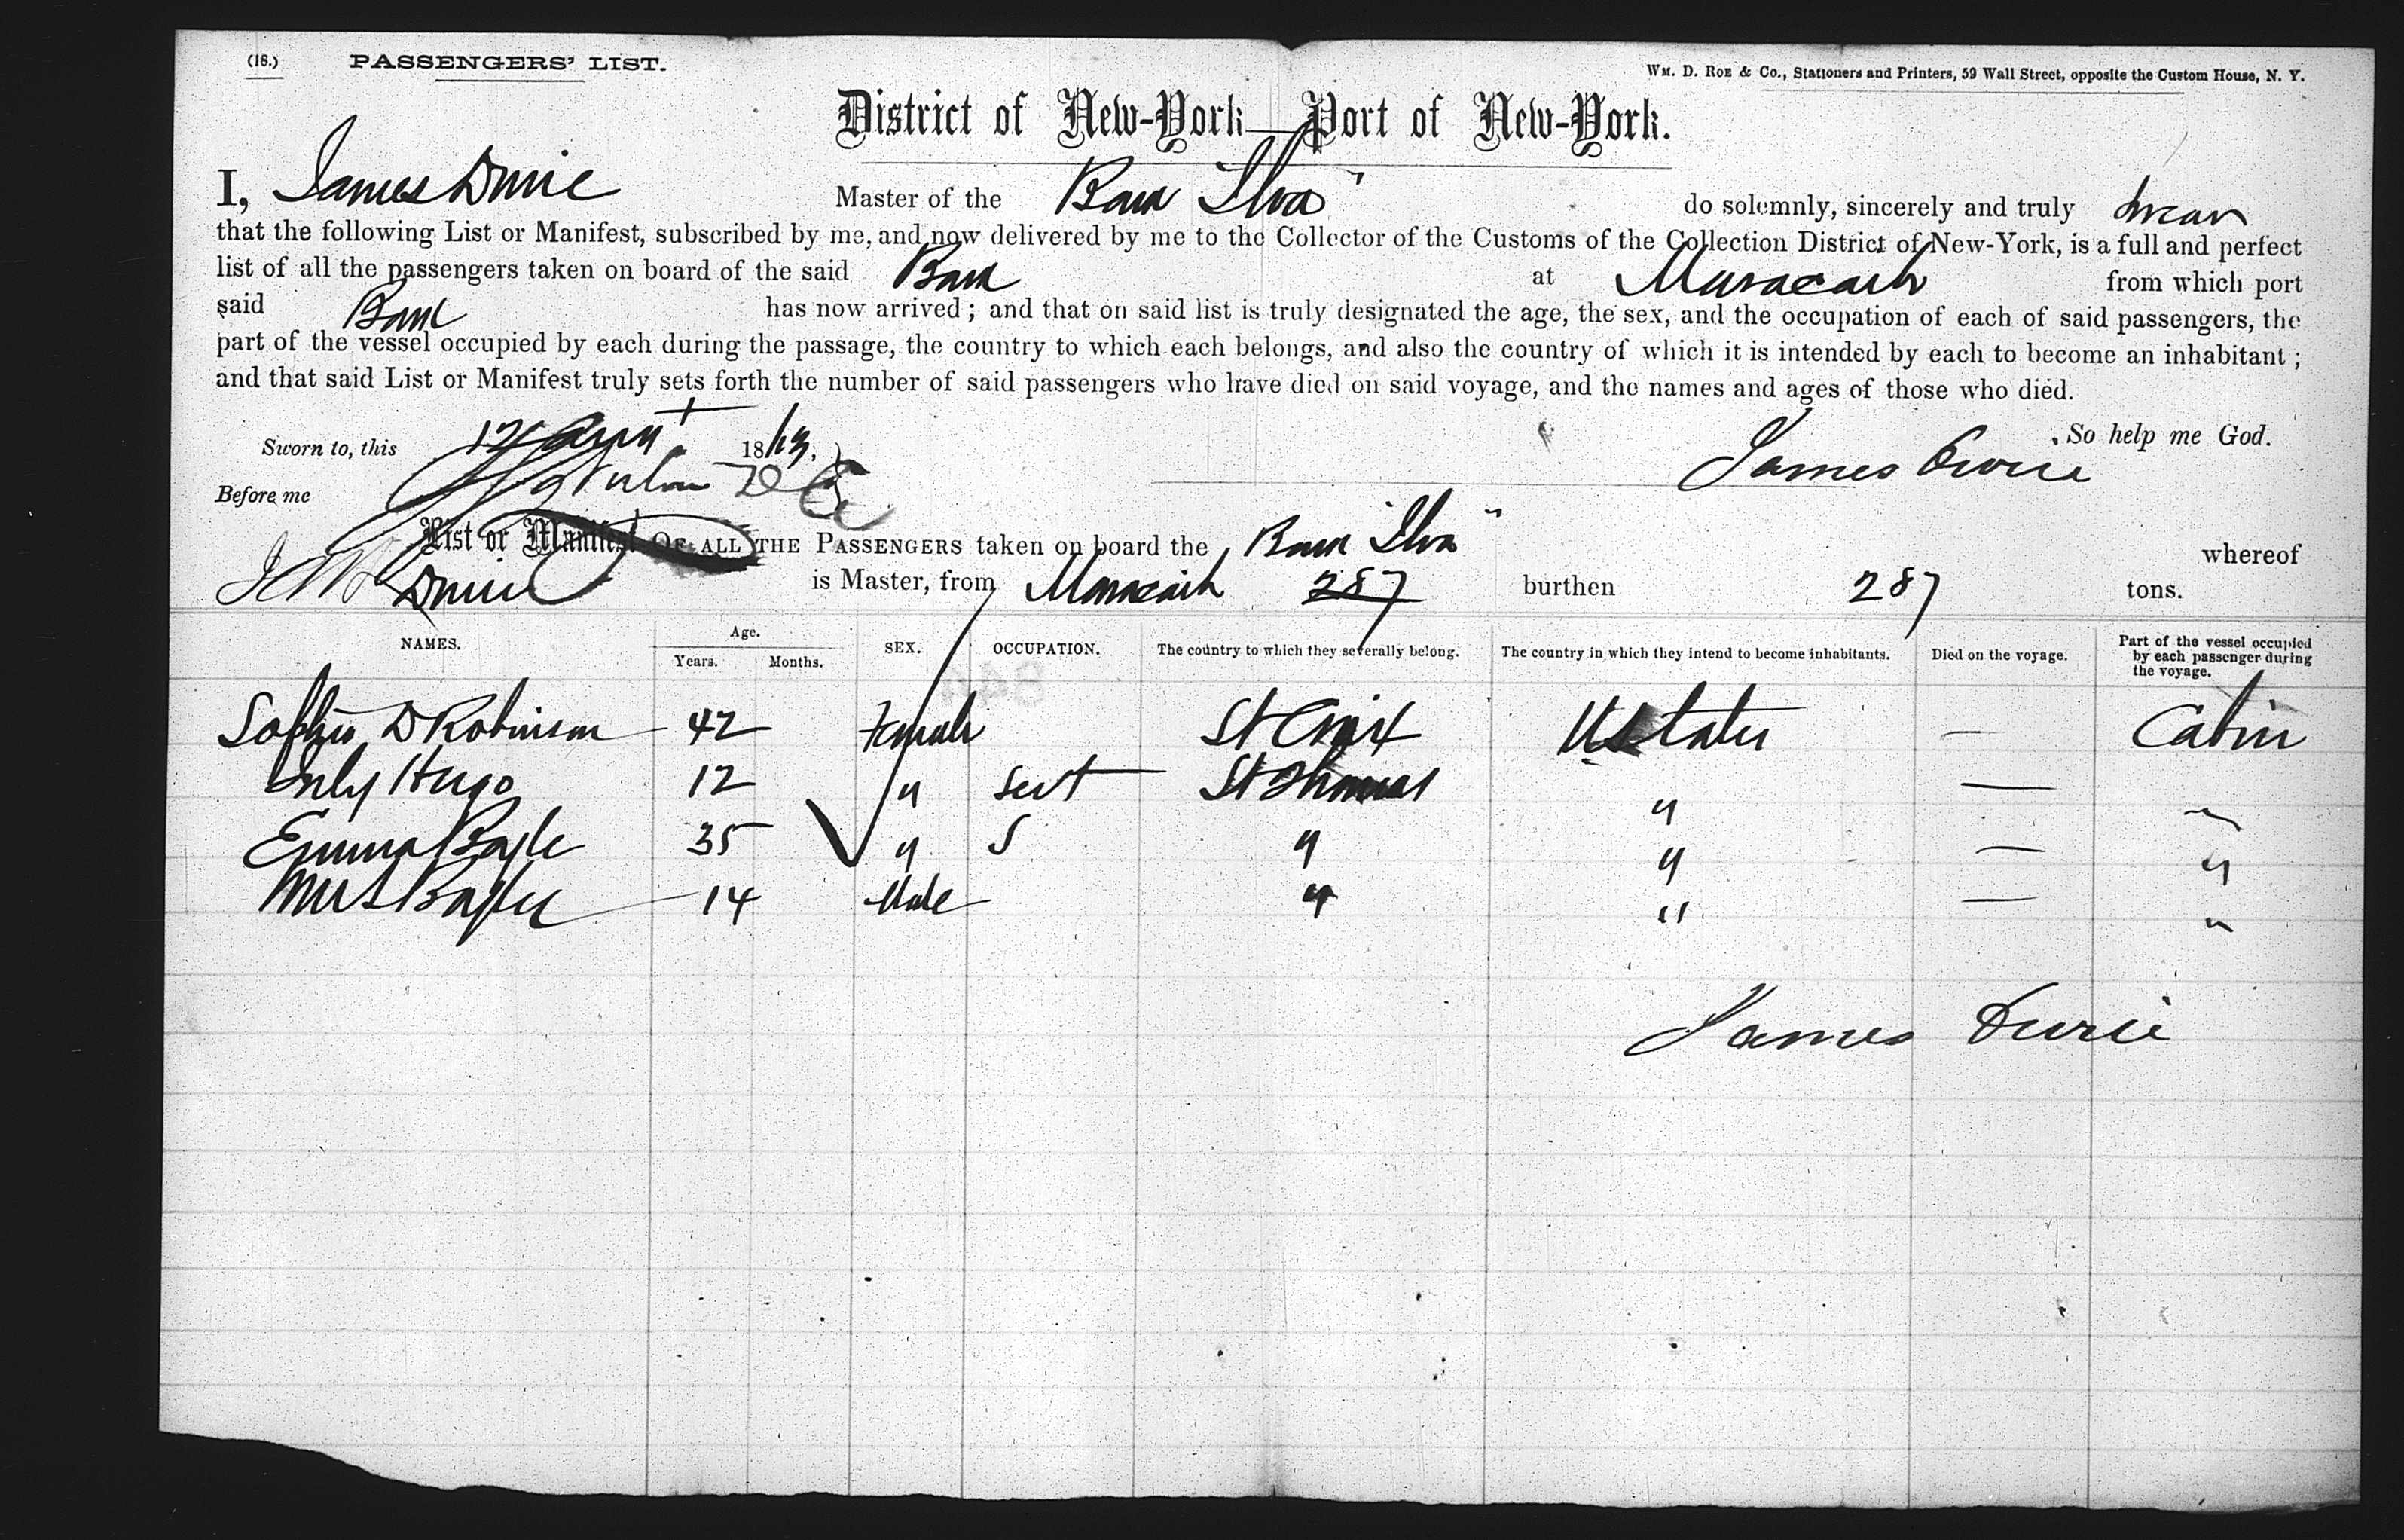 (18.) PASSENGERS' LIST. WM. D. ROE & Co., Stationers and Printers, 59 Wall Street, opposite the Custom House, N. Y.
District of New-York—Port of New-York.
I, James Durie Master of the Bark "Ilva" do solemnly, sincerely and truly swear
that the following List or Manifest, subscribed by me, and now delivered by me to the Collector of the Customs of the Collection District of New-York, is a full and perfect
list of all the passengers taken on board of the said Bark at Maracaibo from which port
said Bark has now arrived; and that on said list is truly designated the age, the sex, and the occupation of each of said passengers, the
part of the vessel occupied by each during the passage, the country to which each belongs, and also the country of which it is intended by each to become an inhabitant;
and that said List or Manifest truly sets forth the number of said passengers who have died on said voyage, and the names and ages of those who died.
So help me God.
Sworn to, this 18 James Durie
Before me
List or Manifest OF ALL THE PASSENGERS taken on board the Bark "Ilva" whereof
Durie is Master, from Maracaibo 287 burthen 287 tons.
NAMES. Age. Years. Months. SEX. OCCUPATION. The country to which they severally belong. The country in which they intend to become inhabitants. Died on the voyage. Part of the vessel occupied by each passenger during the voyage.
D Robinson 42 Female St Croix U States — Cabin
Hugo 12 " Sert St Thomas " — "
Emma Bayle 35 " S " " — "
14 Male " " — "
James Durie